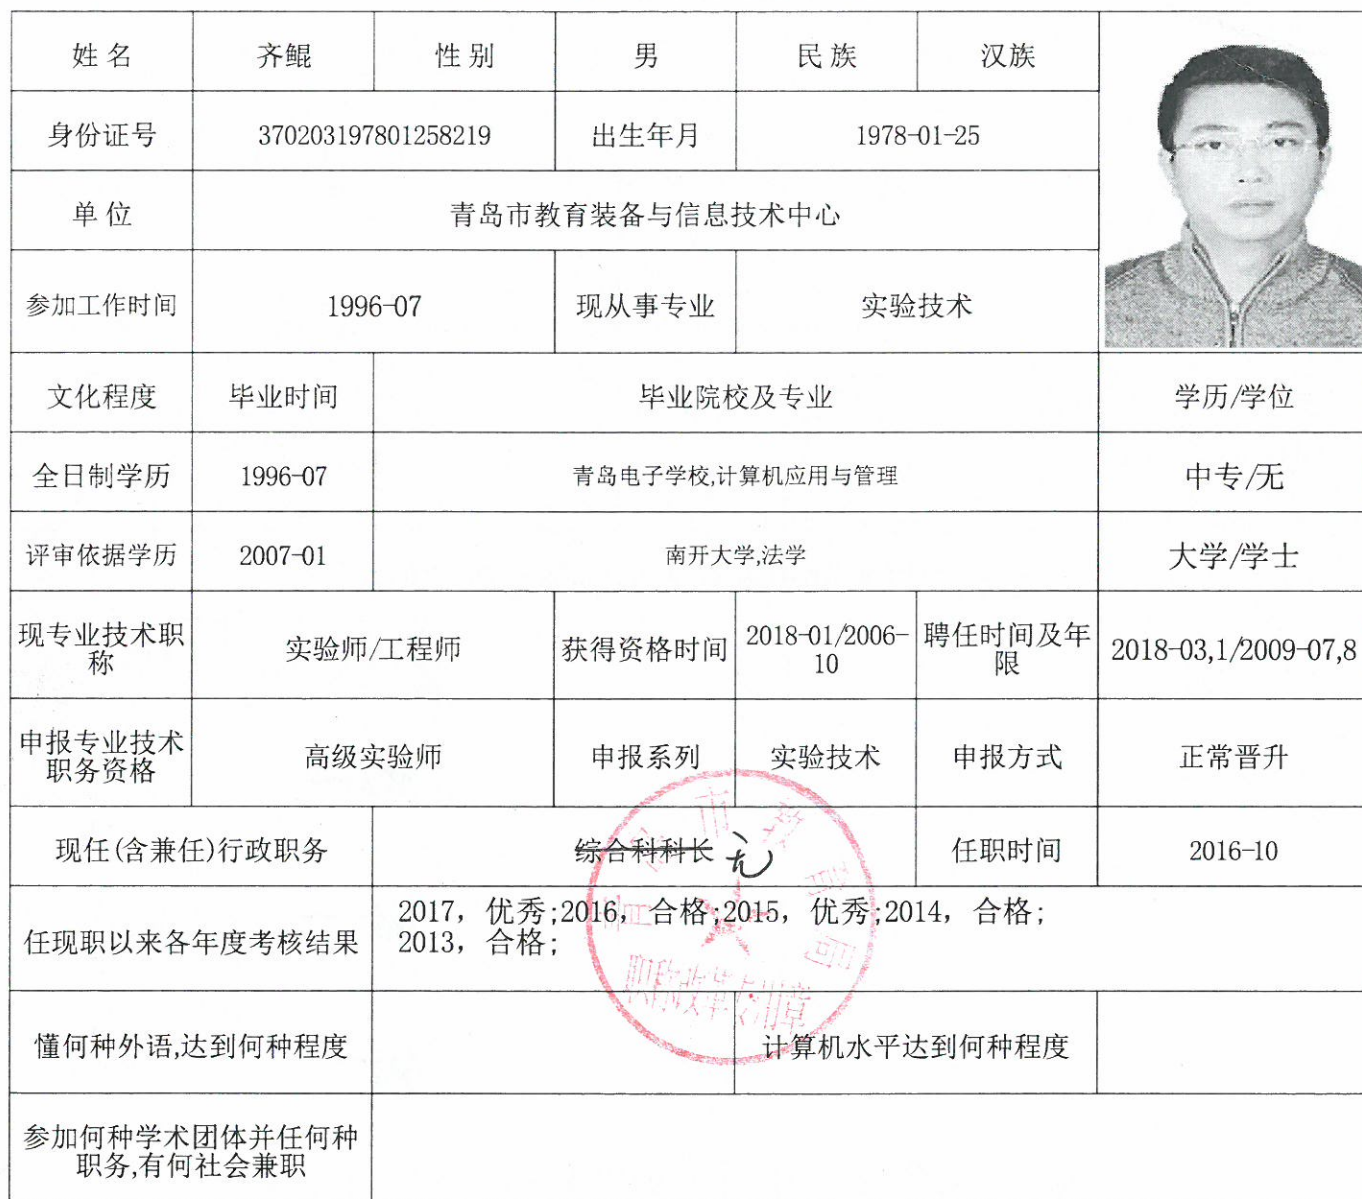 姓名 齐鲲 性别 男 民族 汉族
身份证号 370203197801258219 出生年月 1978-01-25
单位 青岛市教育装备与信息技术中心
参加工作时间 1996-07 现从事专业 实验技术
文化程度 毕业时间 毕业院校及专业 学历/学位
全日制学历 1996-07 青岛电子学校,计算机应用与管理 中专/无
评审依据学历 2007-01 南开大学,法学 大学/学士
现专业技术职
称
实验师/工程师 获得资格时间
2018-01/2006-
10
聘任时间及年
限
2018-03,1/2009-07,8
申报专业技术
职务资格
高级实验师 申报系列 实验技术 申报方式 正常晋升
现任(含兼任)行政职务 综合科科长 无 任职时间 2016-10
任现职以来各年度考核结果
2017, 优秀;2016, 合格;2015, 优秀;2014, 合格;
2013, 合格;
懂何种外语,达到何种程度 计算机水平达到何种程度
参加何种学术团体并任何种
职务,有何社会兼职
青岛市教育局
职称改革专用章